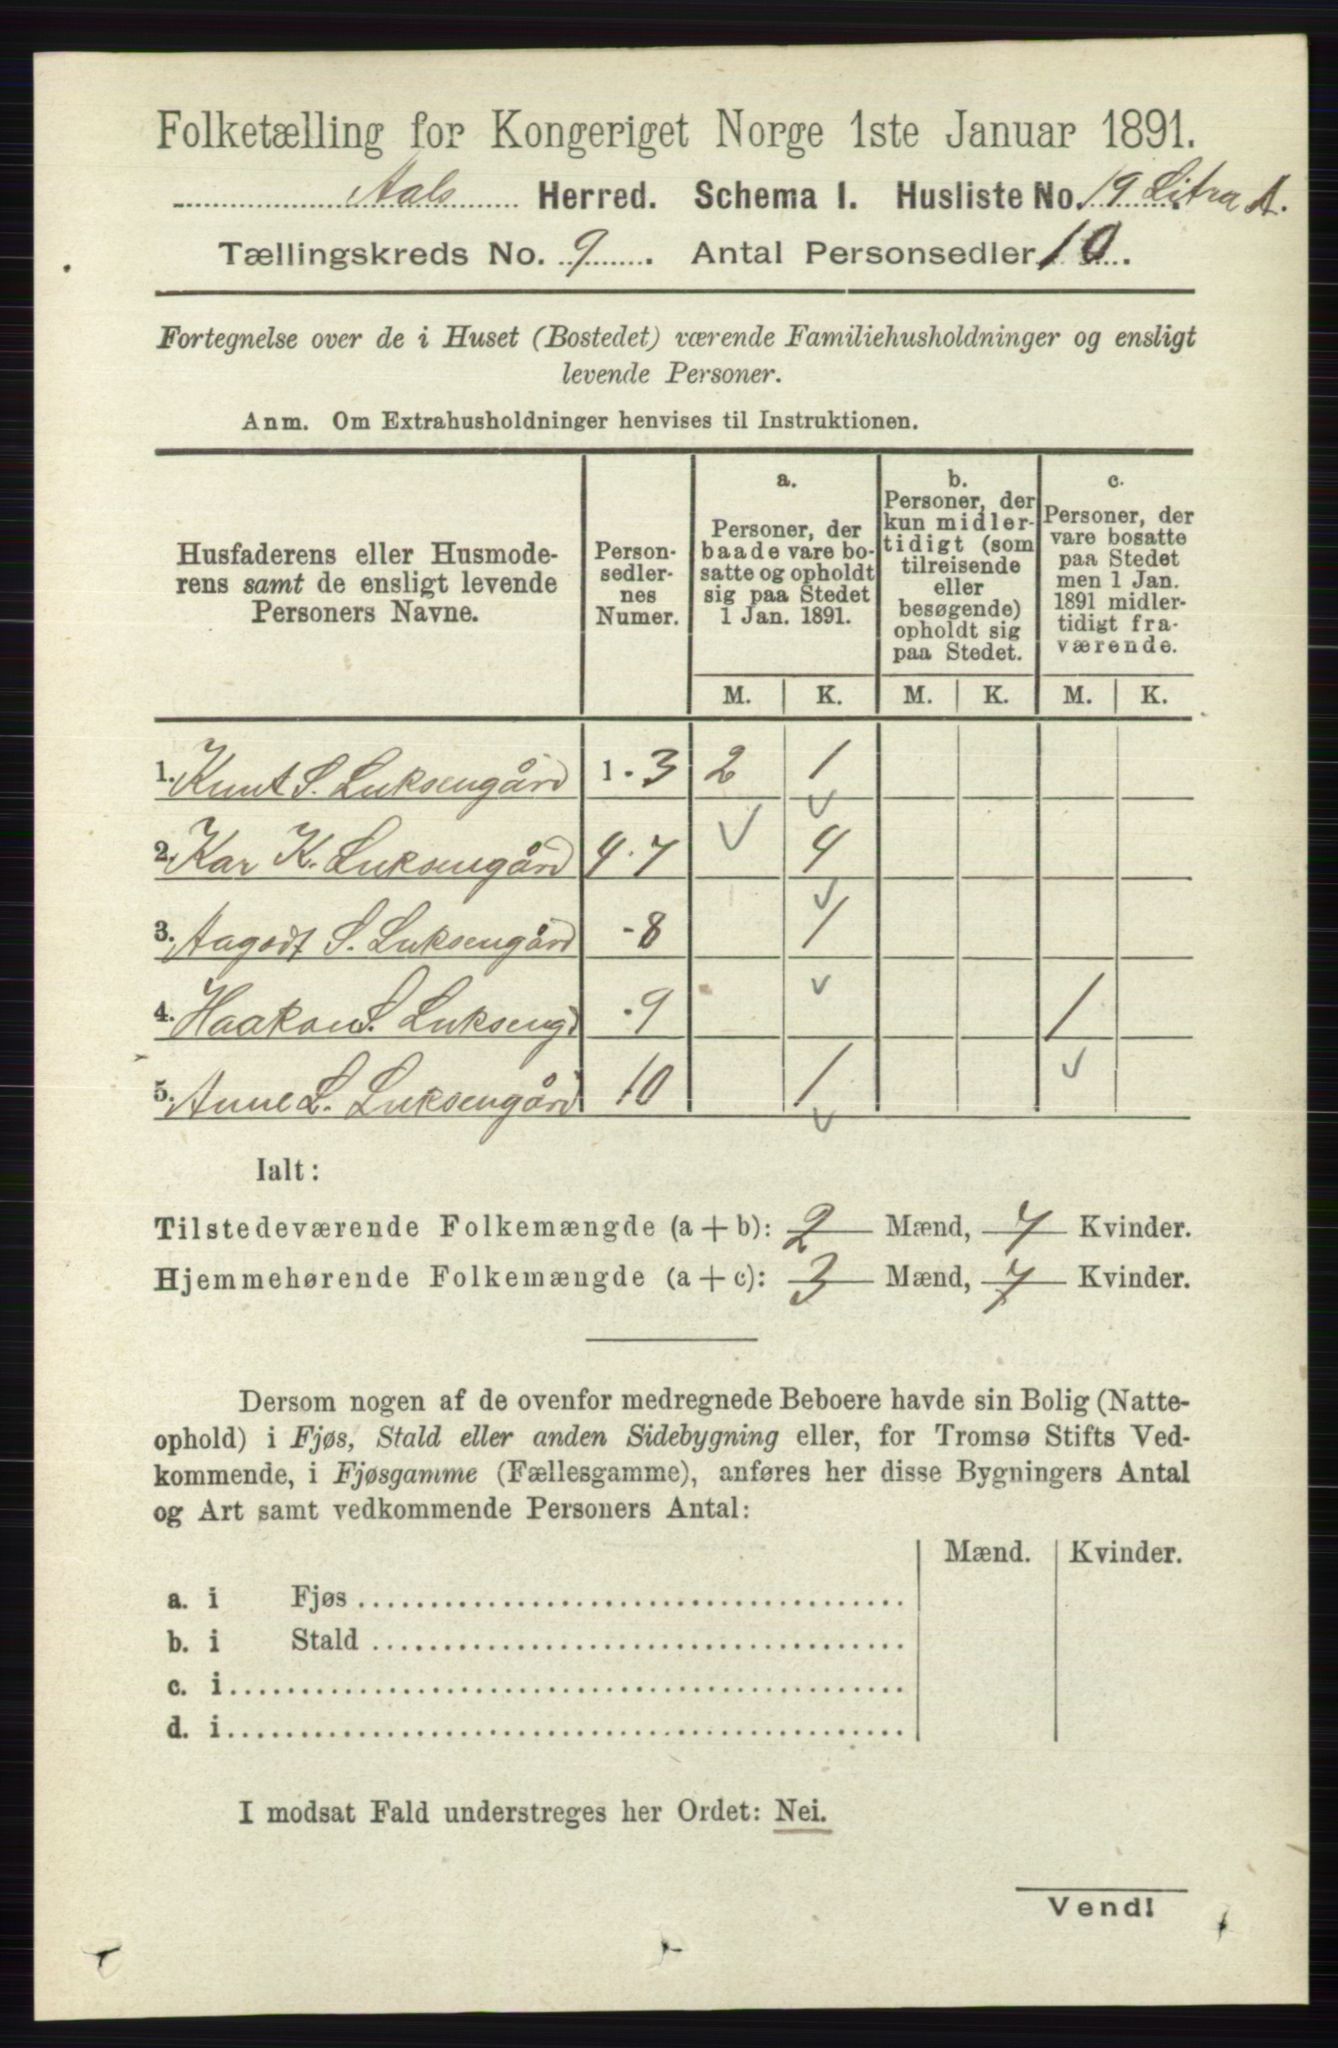 Folketælling for Kongeriget Norge 1ste Januar 1891.
Aals Herred. Schema I. Husliste No. 19 Litra A.
Tællingskreds No. 9. Antal Personsedler 10.
Fortegnelse over de i Huset (Bostedet) værende Familiehusholdninger og ensligt
levende Personer.
Anm. Om Extrahusholdninger henvises til Instruktionen.
Husfaderens eller Husmode-
rens samt de ensligt levende
Personers Navne.
Person-
sedler-
nes
Numer.
a.
Personer, der
baade vare bo-
satte og opholdt
sig paa Stedet
1 Jan. 1891.
b.
Personer, der
kun midler-
tidigt (som
tilreisende
eller
besøgende)
opholdt sig
paa Stedet.
c.
Personer, der
vare bosatte
paa Stedet
men 1 Jan.
1891 midler-
tidigt fra-
værende.
M. K. M. K. M. K.
1. Knut S. Luksengård 1-3 2 1
2. Kar K. Luksengård 4-7 4
3. Aagodt S. Luksengård -8 1
4. Haakon S. Lukseng -9 1
5. Anne L. Luksengård 10 1
Ialt:
Tilstedeværende Folkemængde (a + b): 2 Mænd, 7 Kvinder.
Hjemmehørende Folkemængde (a + c): 3 Mænd, 7 Kvinder.
Dersom nogen af de ovenfor medregnede Beboere havde sin Bolig (Natte-
ophold) i Fjøs, Stald eller anden Sidebygning eller, for Tromsø Stifts Ved-
kommende, i Fjøsgamme (Fællesgamme), anføres her disse Bygningers Antal
og Art samt vedkommende Personers Antal:
Mænd. Kvinder.
a. i Fjøs
b. i Stald
c. i
d. i
I modsat Fald understreges her Ordet: Nei.
Vend!